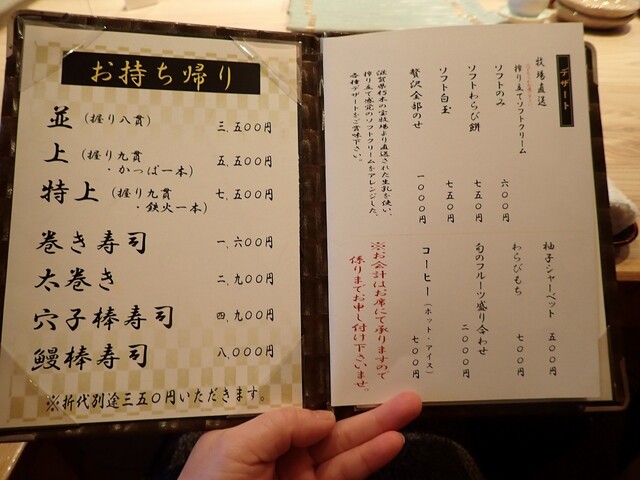 お持ち帰り
並（握り八貫） 三、五〇〇円
上（握り九貫・かっぱ一本） 五、五〇〇円
特上（握り九貫・鉄火一本） 七、五〇〇円
巻き寿司 一、六〇〇円
太巻き 二、九〇〇円
穴子棒寿司 四、九〇〇円
鰻棒寿司 八、〇〇〇円
※折代別途三五〇円いただきます。
デザート
牧場直送
搾り立てソフトクリーム
ソフトのみ 六〇〇円
ソフトわらび餅 七五〇円
ソフト白玉 七五〇円
贅沢全部のせ 一〇〇〇円
滋賀県朽木の宝牧場より直送された生乳を使い、
搾り立て感覚のソフトクリームをアレンジした、
各種デザートをご賞味下さい。
柚子シャーベット 五〇〇円
わらびもち 七〇〇円
旬のフルーツ盛り合わせ 二〇〇〇円
コーヒー（ホット・アイス） 七〇〇円
※お会計はお席にて承りますので
係りまでお申し付け下さいませ。